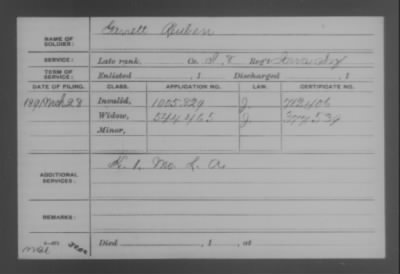 NAME OF SOLDIER: Garrett Reuben
SERVICE: Late rank, Co. I, 8 Reg't Iowa Inf
TERM OF SERVICE: Enlisted , 1 Discharged , 1
DATE OF FILING. CLASS. APPLICATION NO. LAW. CERTIFICATE NO.
1891 Mch 28 Invalid, 1005.829 J 712.406
Widow, 544.465 J 377.539
Minor,
ADDITIONAL SERVICES: K. 1, Mo. L. A.
REMARKS:
Died , 1 , at